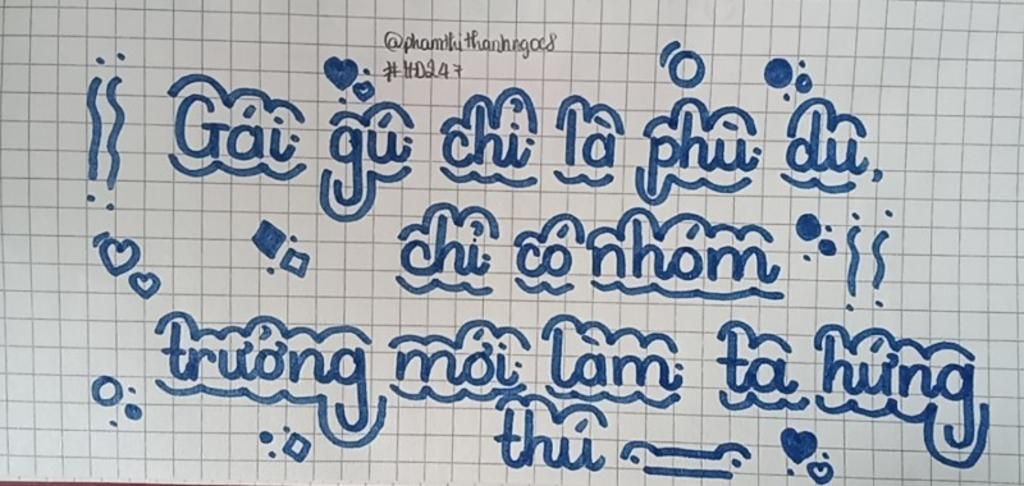 @phamthithanhngoc8
#HD247
Gái gú chỉ là phù du,
chỉ có nhóm
trưởng mới làm ta hứng
thú